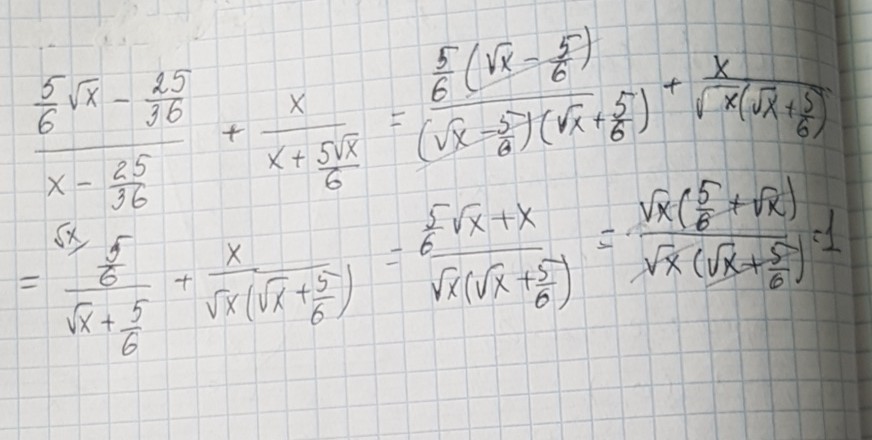 \frac{\frac{5}{6}\sqrt{x} - \frac{25}{36}}{x - \frac{25}{36}} + \frac{x}{x + \frac{5\sqrt{x}}{6}} = \frac{\frac{5}{6}(\sqrt{x} - \frac{5}{6})}{(\sqrt{x} - \frac{5}{6})(\sqrt{x} + \frac{5}{6})} + \frac{x}{\sqrt{x}(\sqrt{x} + \frac{5}{6})}
= \frac{\frac{5}{6}}{\sqrt{x} + \frac{5}{6}}^{\sqrt{x}/} + \frac{x}{\sqrt{x}(\sqrt{x} + \frac{5}{6})} = \frac{\frac{5}{6}\sqrt{x} + x}{\sqrt{x}(\sqrt{x} + \frac{5}{6})} = \frac{\sqrt{x}(\frac{5}{6} + \sqrt{x})}{\sqrt{x}(\sqrt{x} + \frac{5}{6})} = 1